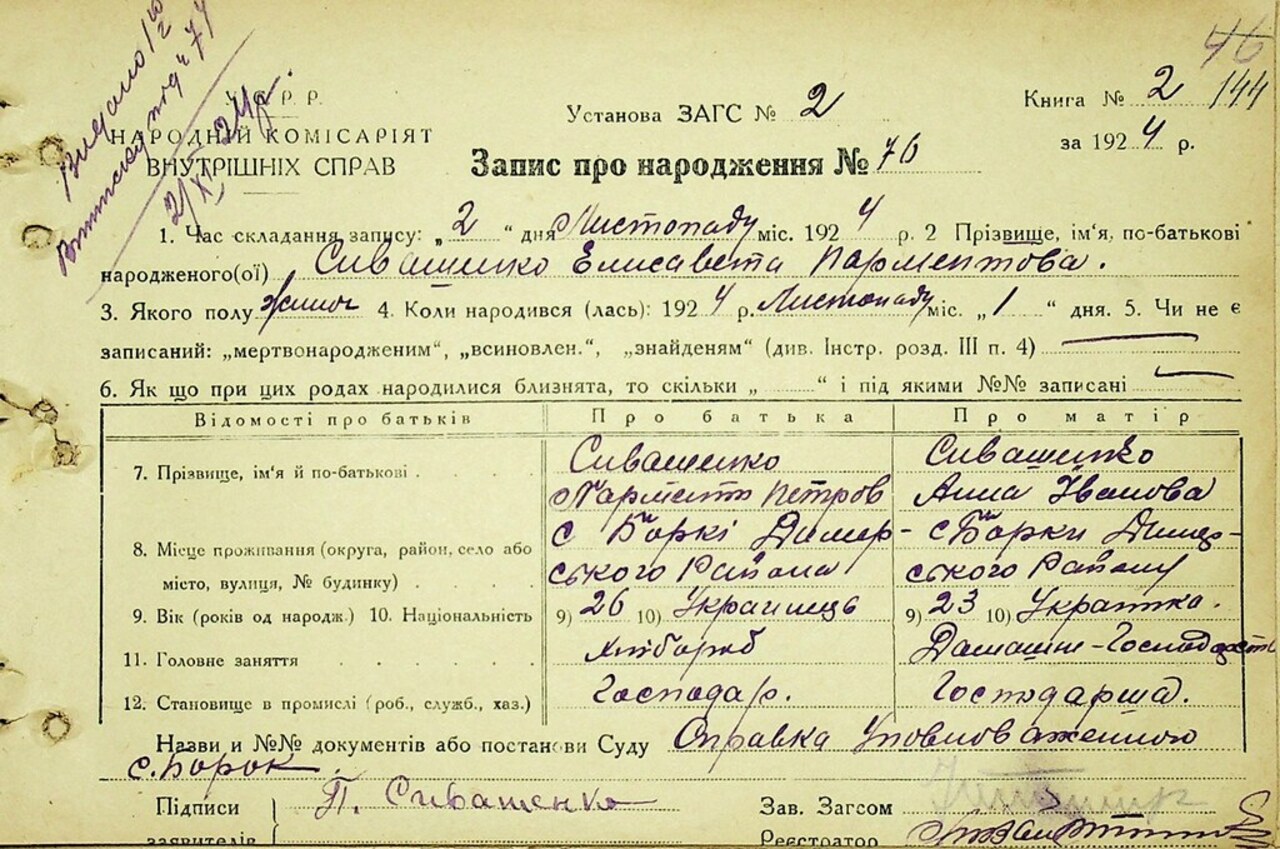 Видано
2/XI 24р.
46
144
У. С. Р. Р.
НАРОДНІЙ КОМІСАРІЯТ
ВНУТРІШНІХ СПРАВ
Установа ЗАГС № 2
Книга № 2
за 1924 р.
Запис про народження № 76
1. Час складання запису: „2“ дня Листопаду міс. 1924 р. 2 Прізвище, ім'я, по-батькові
народженого(ої) Сивашенко Елисавета Парментова.
3. Якого полу жіноч 4. Коли народився (лась): 1924 р. Листопаду міс. „1“ дня. 5. Чи не є
записаний: „мертвонародженим“, „всиновлен.“, „знайденям“ (див. Інстр. розд. III п. 4)
6. Як що при цих родах народилися близнята, то скільки „ “ і під якими №№ записані
Відомості про батьків Про батька Про матір
7. Прізвище, ім'я й по-батькові Сивашенко Сивашенко
Пармент Петров Анна Іванова
8. Місце проживання (округа, район, село або с Боркі Димер- с Борки Димер-
місто, вулиця, № будинку) ського Района ського Району
9. Вік (років од народж.) 10. Національність 9) 26 10) Украинець 9) 23 10) Украінка.
11. Головне заняття Хлібороб Домашнє-Господарство
12. Становище в промислі (роб., служб., хаз.) Господар. Господарша.
Назви и №№ документів або постанови Суду Справка Уповноваженного
с. Борок
Підписи П. Сивашенко Зав. Загсом
заявителів Реєстратор